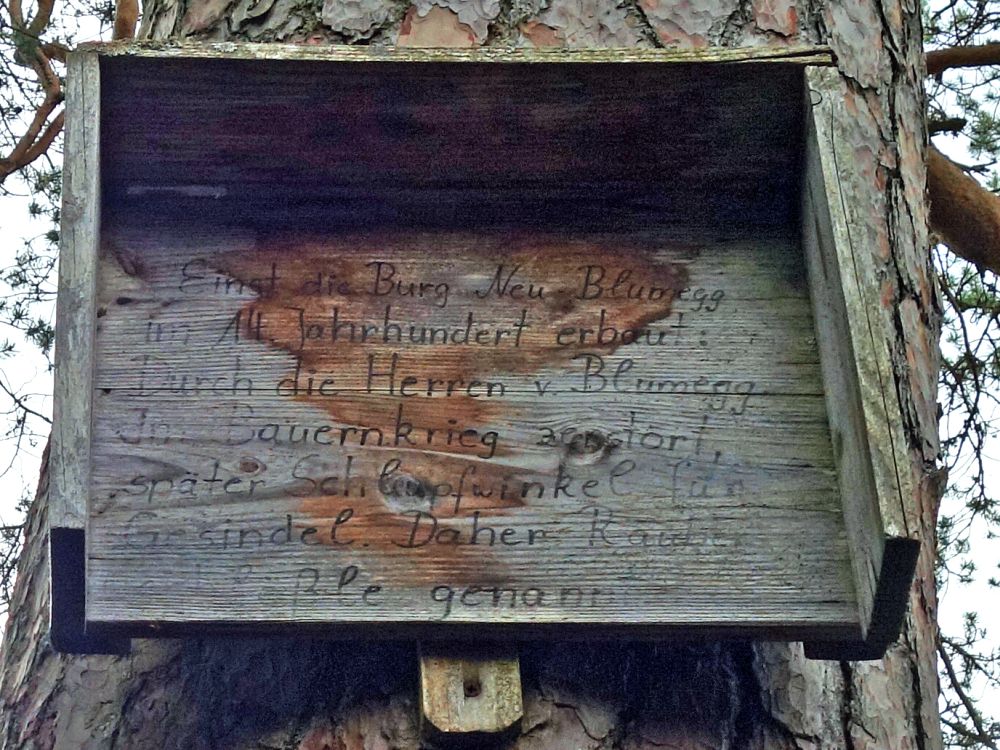 Einst die Burg Neu Blumegg
im 14. Jahrhundert erbaut:
Durch die Herren v. Blumegg.
Im Bauernkrieg zerstört
später Schlupfwinkel für
Gesindel. Daher Räuber
genannt